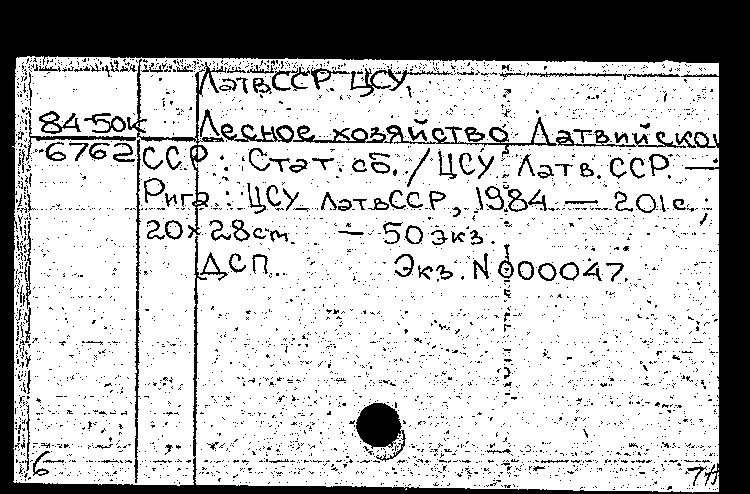 ЛатвССР. ЦСУ.
84-50к Лесное хозяйство Латвийской
6762 ССР : Стат. сб. / ЦСУ Латв. ССР. —
Рига : ЦСУ ЛатвССР, 1984 — 201с.;
20х28cm. — 50 экз.
ДСП. Экз. N000047.
6